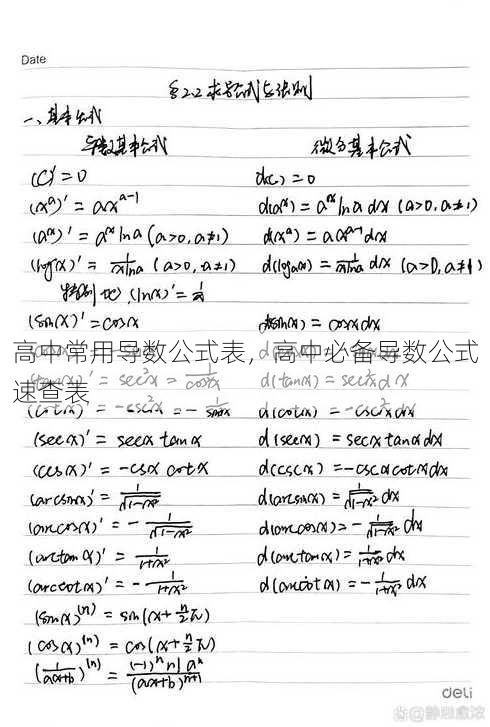 Date
§2.2 求导公式与法则
一、基本公式
导数基本公式 微分基本公式
(C)' = 0 d(c) = 0
(x^a)' = ax^{a-1} d(a^x) = a^x ln a dx (a>0, a≠1)
(a^x)' = a^x ln a (a>0, a≠1) d(x^a) = a x^{a-1} dx
(log_a x)' = 1/(x ln a) (a>0, a≠1) d(log_a x) = 1/(x ln a) dx (a>0, a≠1)
特别地, (ln x)' = 1/x
(sin x)' = cos x d(sin x) = cos x dx
高中常用导数公式表，高中必备导数公式
速查表
= sec²x = 1/cos²x d(tan x) = sec²x dx
(cot x)' = -csc²x = - 1/sin²x d(cot x) = -csc²x dx
(sec x)' = sec x tan x d(sec x) = sec x tan x dx
(csc x)' = -csc x cot x d(csc x) = -csc x cot x dx
(arcsin x)' = 1/√(1-x²) d(arcsin x) = 1/√(1-x²) dx
(arccos x)' = - 1/√(1-x²) d(arccos x) = - 1/√(1-x²) dx
(arctan x)' = 1/(1+x²) d(arctan x) = 1/(1+x²) dx
(arccot x)' = - 1/(1+x²) d(arccot x) = - 1/(1+x²) dx
(sin x)^{(n)} = sin(x + n/2 π)
(cos x)^{(n)} = cos(x + n/2 π)
(1/(ax+b))^{(n)} = (-1)^n n! a^n/(ax+b)^{n+1}
deli